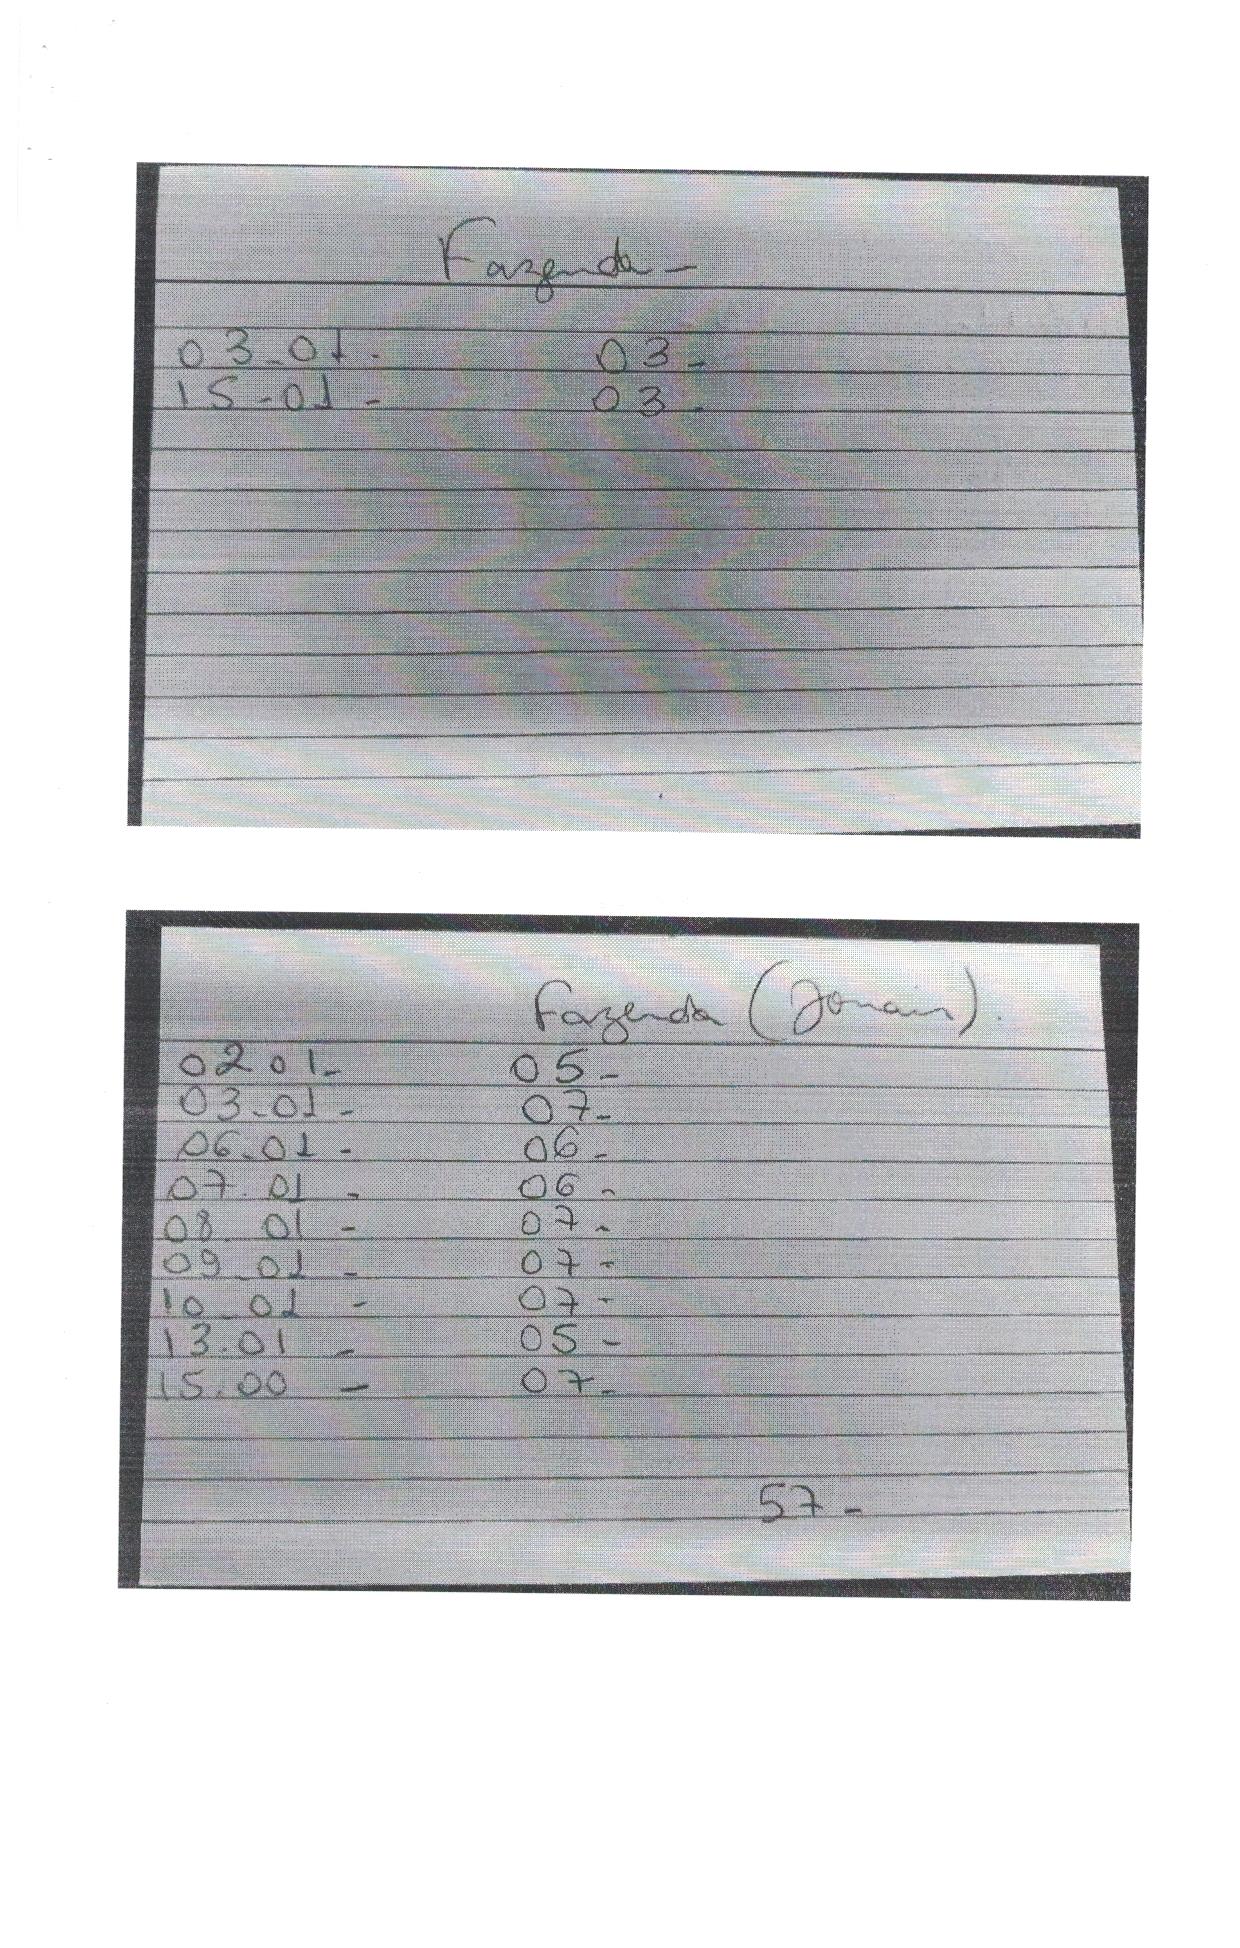 Fazenda -
03-01- 03-
15-01- 03-
Fazenda (Jomair).
02 01- 05-
03-01- 07-
06-01- 06-
07.01 - 06-
08 01- 07-
09-01 - 07-
10-01 - 07-
13.01 - 05-
15.00 - 07-
57-